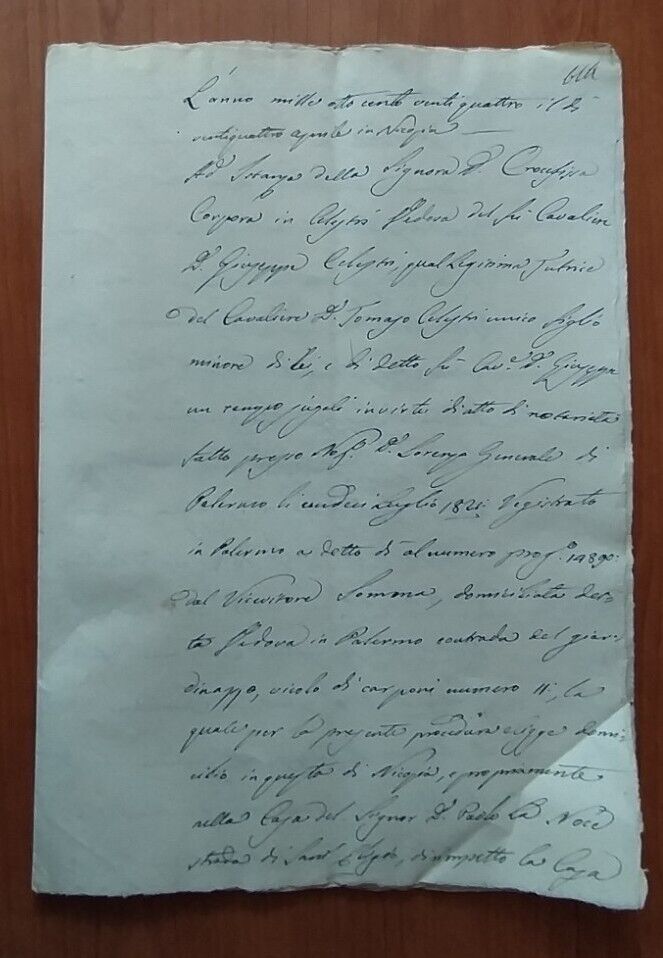 L'anno mille otto cento ventiquattro il dì
ventiquattro aprile in Nicosia
Ad Istanza della Signora D.ª Crocifissa
Corpora in Celestri Vedova del fù Cavaliere
D. Giuseppe Celestri, qual Legitima Tutrice
del Cavaliere D. Tomaso Celestri unico figlio
minore di lei, e di detto fù Cav.e D. Giuseppe
un tempo jugali in virtù di atto di notorietà
fatto presso Not. D. Lorenzo Generale di
Palermo li Luglio 1821: Registrato
in Palermo a detto dì al numero prog.o 14890:
dal Ricevitore Somma, domiciliata det-
ta Vedova in Palermo contrada del giar-
dinazzo, vicolo di carponi numero 11:, la
quale per la presente procedura eligge domi-
cilio in questa di Nicosia, e propriamente
nella Casa del Signor D. Paolo La Noce
strada di Sant' dirimpetto la Casa